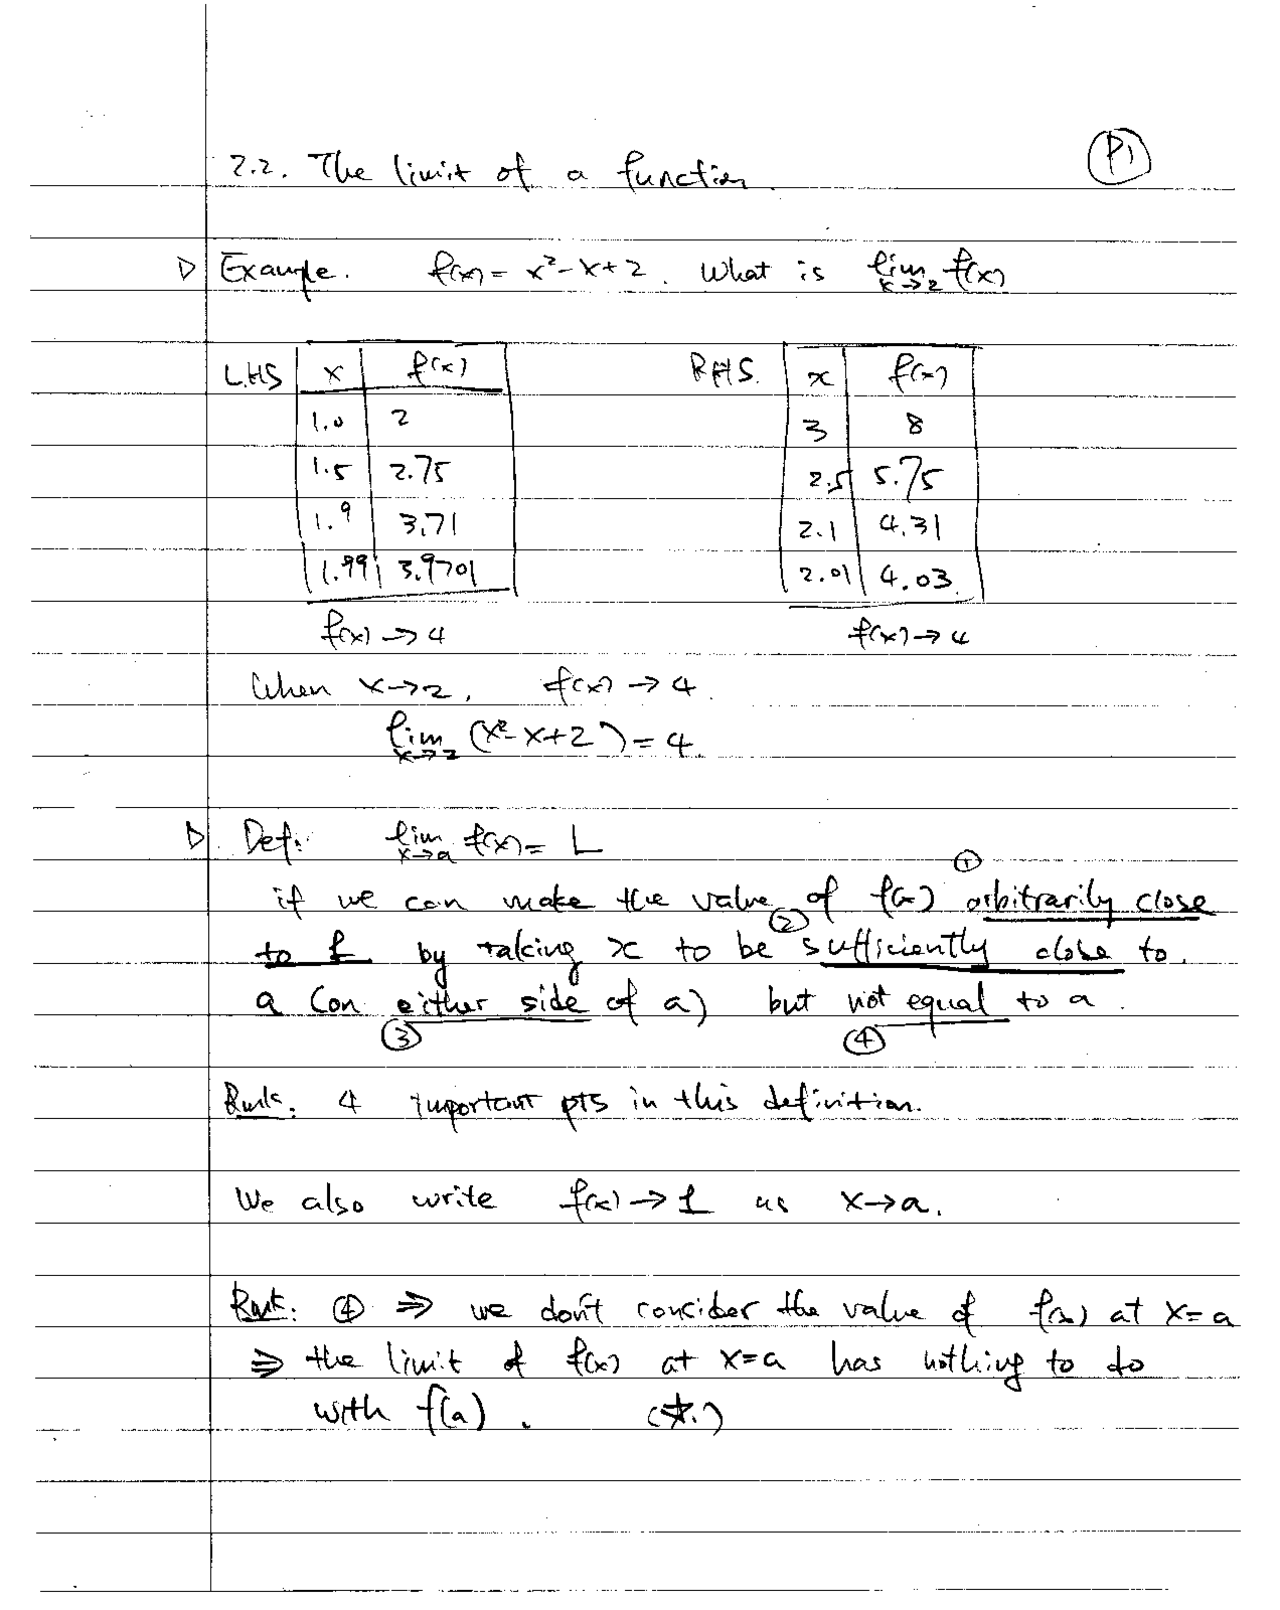 P1
2.2. The limit of a function.
Example. f(x) = x²-x+2. What is lim x→2 f(x)
LHS x f(x) RHS. x f(x)
1.0 2 3 8
1.5 2.75 2.5 5.75
1.9 3.71 2.1 4.31
1.99 3.9701 2.01 4.03
f(x) → 4 f(x) → 4
When x→2, f(x) → 4.
lim x→2 (x²-x+2) = 4.
Def: lim x→a f(x) = L
①
if we can make the value of f(x) arbitrarily close
②
to L by taking x to be sufficiently close to
a (on either side of a) but not equal to a.
③ ④
Rmk: 4 important pts in this definition.
We also write f(x) → L as x→a.
Rmk: ④ ⇒ we don't consider the value of f(x) at x=a
⇒ the limit of f(x) at x=a has nothing to do
with f(a). (☆.)